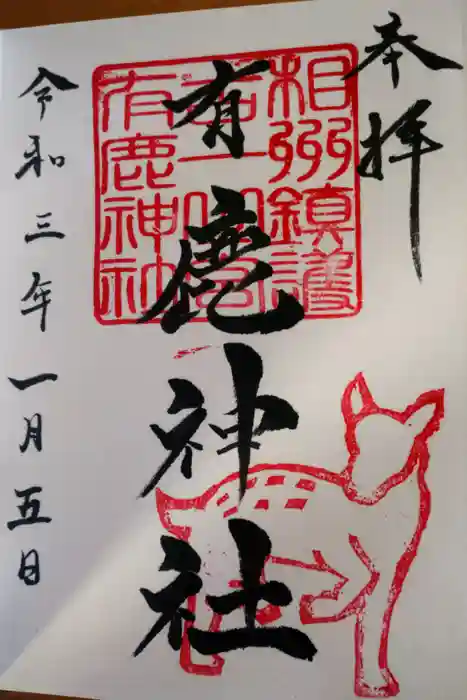 奉拝
相州鎮護
有鹿神社
有鹿神社
令和三年一月五日